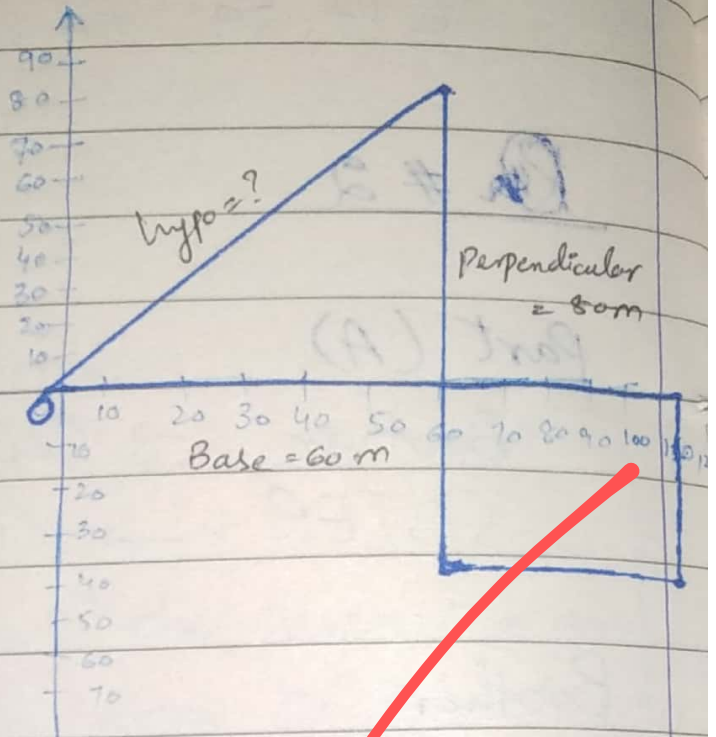 90
80
70
60
50
40
30
20
10
hypo = ?
perpendicular
= 80m
O
10 20 30 40 50 60 70 80 90 100
Base = 60 m
10
20
30
40
50
60
70